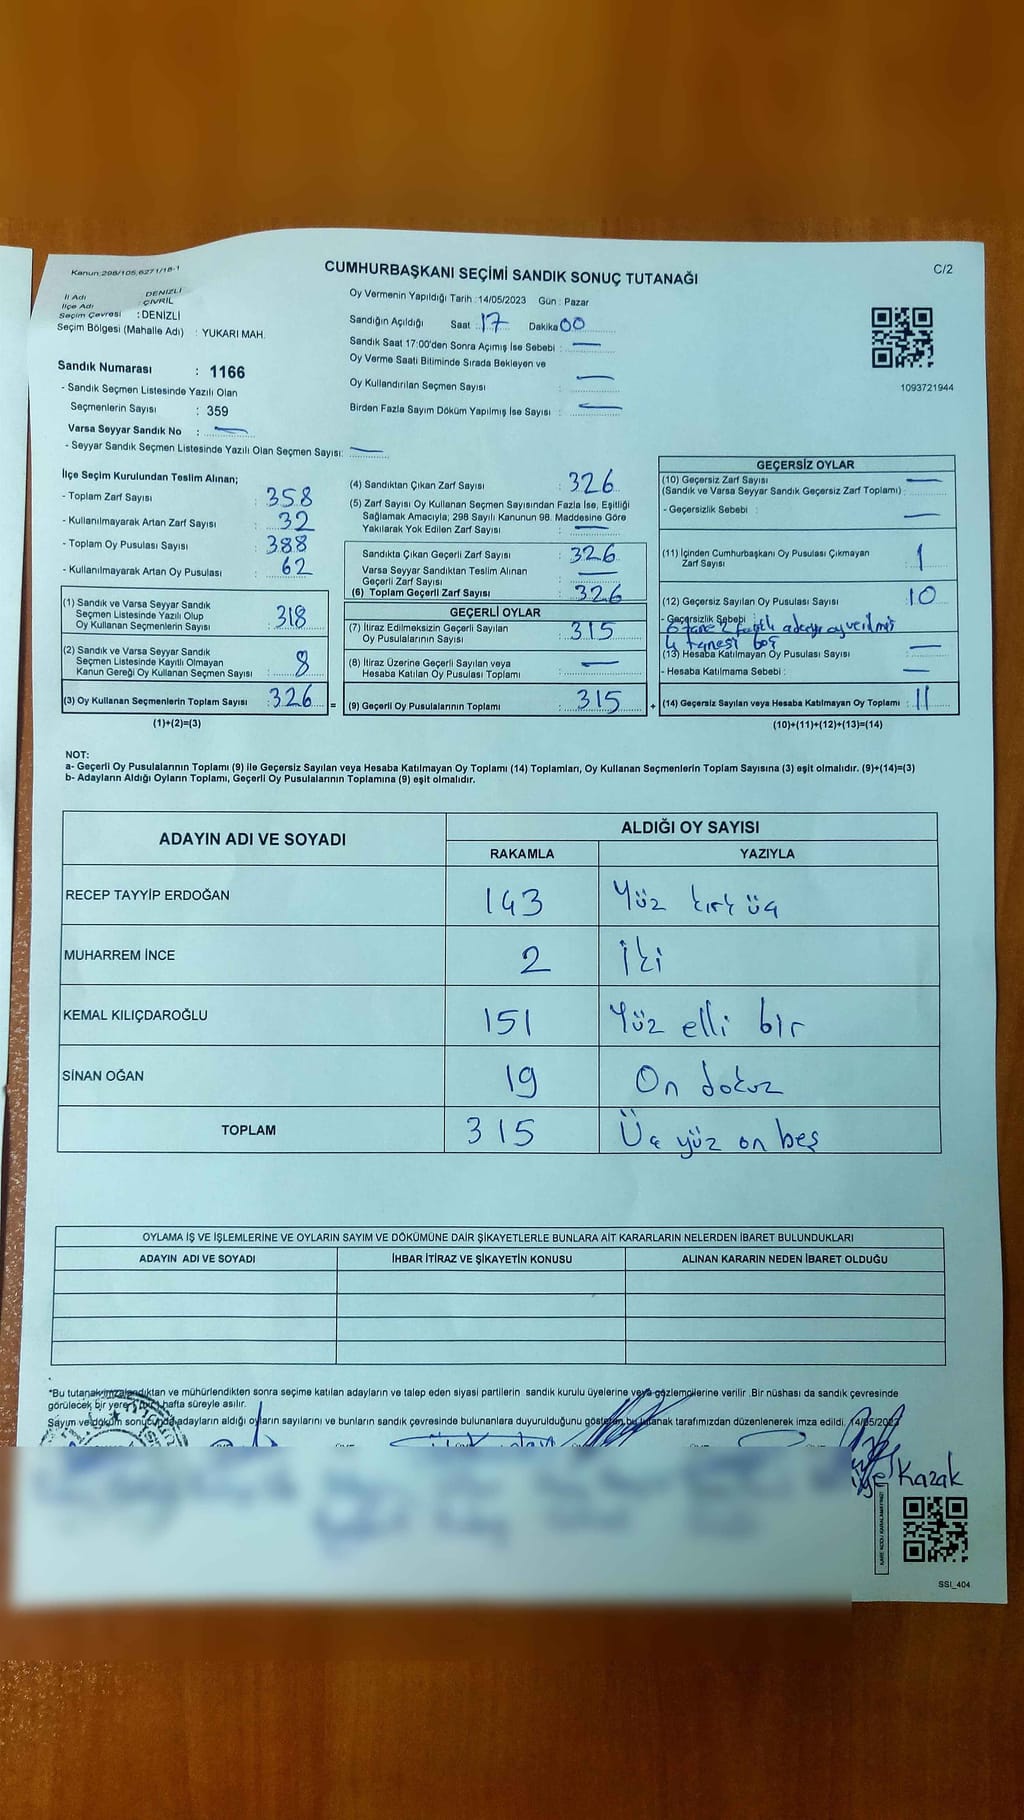 Kanun:298/105,6271/18-1
CUMHURBAŞKANI SEÇİMİ SANDIK SONUÇ TUTANAĞI
C/2
İl Adı DENİZLİ
İlçe Adı : ÇİVRİL
Seçim Çevresi : DENİZLİ
Seçim Bölgesi (Mahalle Adı) : YUKARI MAH.
Oy Vermenin Yapıldığı Tarih :14/05/2023 Gün : Pazar
Sandığın Açıldığı Saat :17 Dakika 00
Sandık Saat 17:00'den Sonra Açımış İse Sebebi : —
Oy Verme Saati Bitiminde Sırada Bekleyen ve
Oy Kullandırılan Seçmen Sayısı : —
Birden Fazla Sayım Döküm Yapılmış İse Sayısı : —
1093721944
Sandık Numarası : 1166
- Sandık Seçmen Listesinde Yazılı Olan
Seçmenlerin Sayısı : 359
Varsa Seyyar Sandık No : —
- Seyyar Sandık Seçmen Listesinde Yazılı Olan Seçmen Sayısı: —
İlçe Seçim Kurulundan Teslim Alınan;
- Toplam Zarf Sayısı : 358
- Kullanılmayarak Artan Zarf Sayısı : 32
- Toplam Oy Pusulası Sayısı : 388
- Kullanılmayarak Artan Oy Pusulası : 62
(1) Sandık ve Varsa Seyyar Sandık
Seçmen Listesinde Yazılı Olup
Oy Kullanan Seçmenlerin Sayısı : 318
(2) Sandık ve Varsa Seyyar Sandık
Seçmen Listesinde Kayıtlı Olmayan
Kanun Gereği Oy Kullanan Seçmen Sayısı : 8
(3) Oy Kullanan Seçmenlerin Toplam Sayısı : 326 =
(1)+(2)=(3)
(4) Sandıktan Çıkan Zarf Sayısı : 326
(5) Zarf Sayısı Oy Kullanan Seçmen Sayısından Fazla İse, Eşitliği
Sağlamak Amacıyla; 298 Sayılı Kanunun 98. Maddesine Göre
Yakılarak Yok Edilen Zarf Sayısı : —
Sandıkta Çıkan Geçerli Zarf Sayısı : 326
Varsa Seyyar Sandıktan Teslim Alınan
Geçerli Zarf Sayısı : —
(6) Toplam Geçerli Zarf Sayısı : 326
GEÇERLİ OYLAR
(7) İtiraz Edilmeksizin Geçerli Sayılan
Oy Pusulalarının Sayısı : 315
(8) İtiraz Üzerine Geçerli Sayılan veya
Hesaba Katılan Oy Pusulası Toplamı : —
(9) Geçerli Oy Pusulalarının Toplamı : 315 +
GEÇERSİZ OYLAR
(10) Geçersiz Zarf Sayısı : —
(Sandık ve Varsa Seyyar Sandık Geçersiz Zarf Toplamı) :
- Geçersizlik Sebebi : —
(11) İçinden Cumhurbaşkanı Oy Pusulası Çıkmayan
Zarf Sayısı : 1
(12) Geçersiz Sayılan Oy Pusulası Sayısı : 10
- Geçersizlik Sebebi :
6 tane 2 farklı adaya oy verilmiş
4 tanesi boş
(13) Hesaba Katılmayan Oy Pusulası Sayısı : —
- Hesaba Katılmama Sebebi : —
(14) Geçersiz Sayılan veya Hesaba Katılmayan Oy Toplamı : 11
(10)+(11)+(12)+(13)=(14)
NOT:
a- Geçerli Oy Pusulalarının Toplamı (9) ile Geçersiz Sayılan veya Hesaba Katılmayan Oy Toplamı (14) Toplamları, Oy Kullanan Seçmenlerin Toplam Sayısına (3) eşit olmalıdır. (9)+(14)=(3)
b- Adayların Aldığı Oyların Toplamı, Geçerli Oy Pusulalarının Toplamına (9) eşit olmalıdır.
ADAYIN ADI VE SOYADI ALDIĞI OY SAYISI
RAKAMLA YAZIYLA
RECEP TAYYİP ERDOĞAN 143 Yüz kırk üç
MUHARREM İNCE 2 İki
KEMAL KILIÇDAROĞLU 151 Yüz elli bir
SİNAN OĞAN 19 On dokuz
TOPLAM 315 Üç yüz on beş
OYLAMA İŞ VE İŞLEMLERİNE VE OYLARIN SAYIM VE DÖKÜMÜNE DAİR ŞİKAYETLERLE BUNLARA AİT KARARLARIN NELERDEN İBARET BULUNDUKLARI
ADAYIN ADI VE SOYADI İHBAR İTİRAZ VE ŞİKAYETİN KONUSU ALINAN KARARIN NEDEN İBARET OLDUĞU
*Bu tutanak imzalandıktan ve mühürlendikten sonra seçime katılan adayların ve talep eden siyasi partilerin sandık kurulu üyelerine veya gözlemcilerine verilir .Bir nüshası da sandık çevresinde
görülecek bir yere 1 (bir) hafta süreyle asılır.
Sayım ve döküm sonucunda adayların aldığı oyların sayılarını ve bunların sandık çevresinde bulunanlara duyurulduğunu gösteren bu tutanak tarafımızdan düzenlenerek imza edildi. 14/05/2023
Kazak
SSI_404